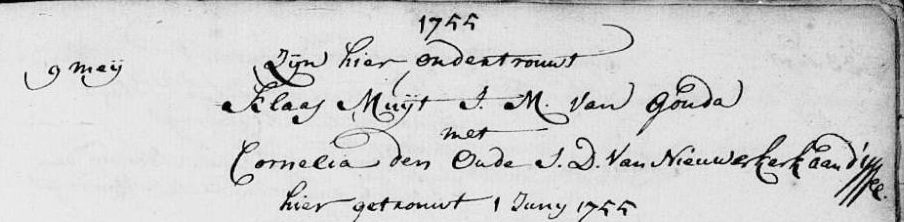 1755
9 meij Zijn hier ondertrouwt
Klaas Muijt J. M. van Gouda
met
Cornelia den Oude J. D. van Nieuwerkerk aand' ijssel.
hier getrouwt 1 Juny 1755